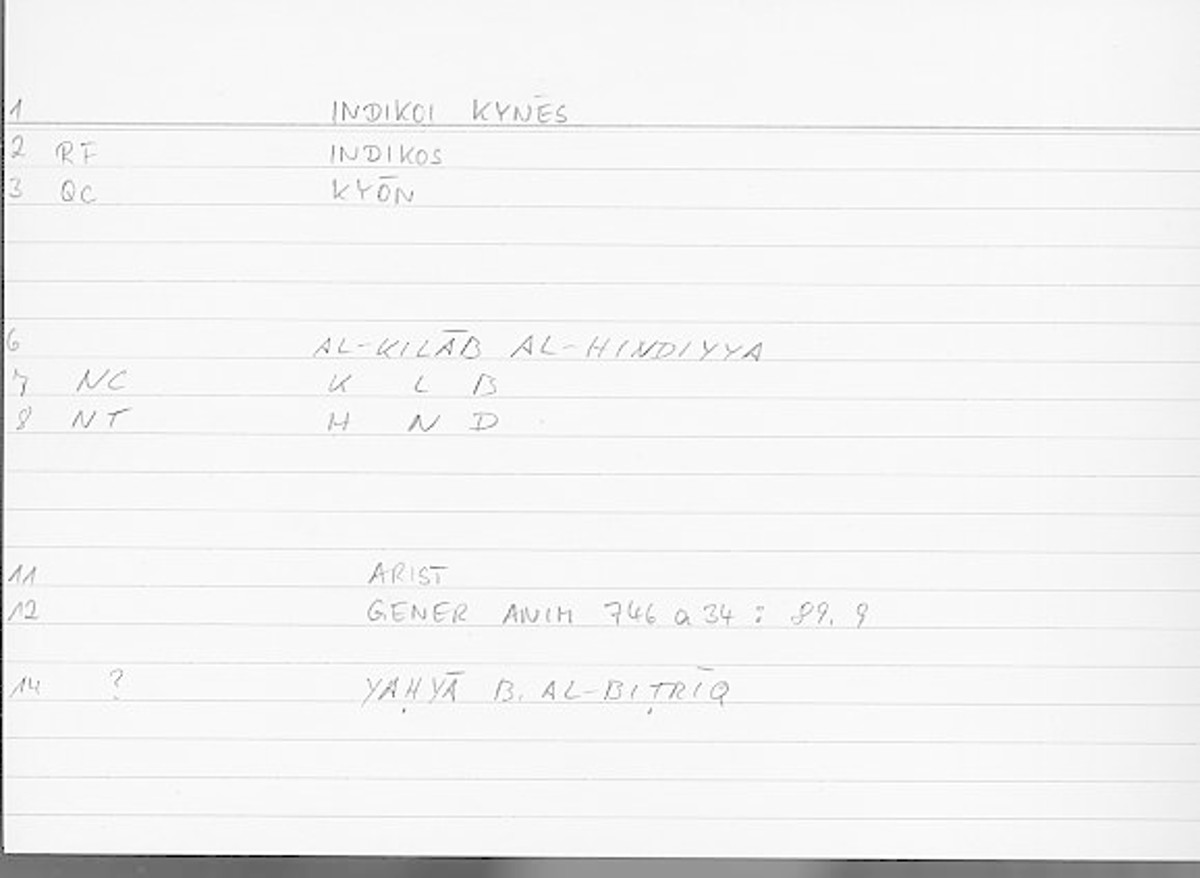 1 INDIKOI KYNĒS
2 RF INDIKOS
3 QC KYŌN
6 AL-KILĀB AL-HINDIYYA
7 NC K L B
8 NT H N D
11 ARIST
12 GENER ANIM 746 a 34 : 89. 9
14 ? YAḤYĀ B. AL-BIṬRĪQ